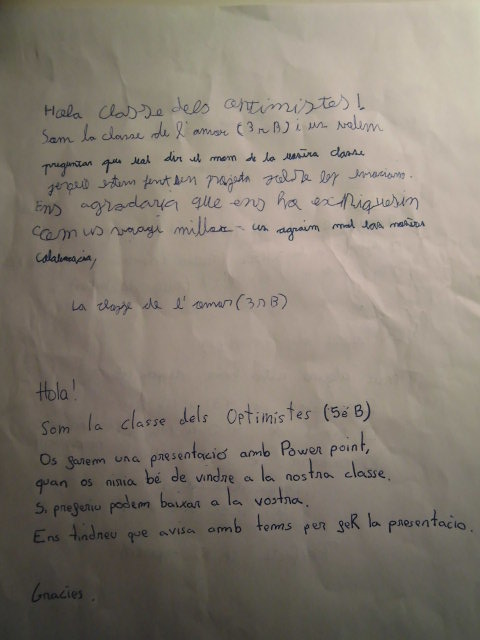 Hola classe dels optimistes!
Som la classe de l'amor (3r B) i us volem
preguntar que vol dir el nom de la vostra classe
perquè estem fent un projecte sobre les emocions.
Ens agradaria que ens ho expliquesin
com us vagi millor - us agraim molt la vostra
colaboracia,
La classe de l'amor (3r B)
Hola!
Som la classe dels Optimistes (5é B)
Os farem una presentació amb Power point,
quan os niria bé de vindre a la nostra classe.
Si preferiu podem baixar a la vostra.
Ens tindreu que avisa amb tems per feR la presentacio.
Gracies.